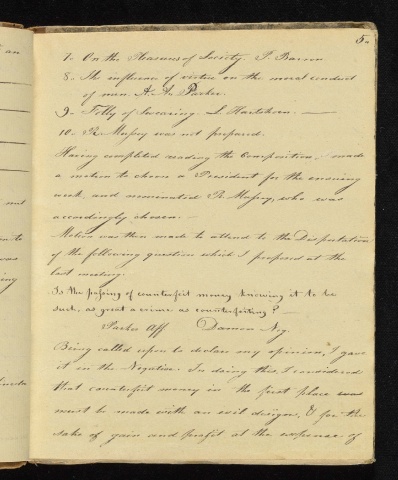 5.
7. On the Pleasures of Society. P. Barron
8. The influence of virtue on the moral conduct
of man. A. A. Parker.
9. Folly of Swearing. L. Hartshorn.
10. R. Mussey was not prepared.
Having completed reading the Composition, made
a motion to choose a President for the ensuing
week, and nominated R. Mussey, who was
accordingly chosen.
Motion was then made to attend to the Disputation
of the following question which I proposed at the
last meeting.
Is the passing of counterfeit money knowing it to be
such, as great a crime as counterfeiting?
Parker Aff Damon Neg.
Being called upon to declare my opinion, I gave
it in the Negative. In doing this, I considered
that counterfeit money in the first place was
must be made with an evil design, & for the
sake of gain and profit at the expense of